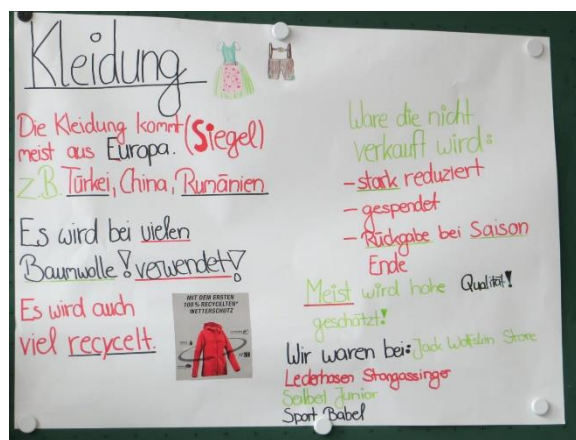 Kleidung
Die Kleidung kommt (Siegel)
meist aus Europa.
z.B. Türkei, China, Rumänien
Es wird bei vielen
Baumwolle! verwendet!
Es wird auch
viel recycelt.
MIT DEM ERSTEN
100% RECYCELTEN*
WETTERSCHUTZ
Ware die nicht
verkauft wird:
- stark reduziert
- gespendet
- Rückgabe bei Saison
Ende
Meist wird hohe Qualität!
geschätzt!
Wir waren bei: Jack Wolfskin Store
Lederhosen Stangassinger
Junior
Sport Babel